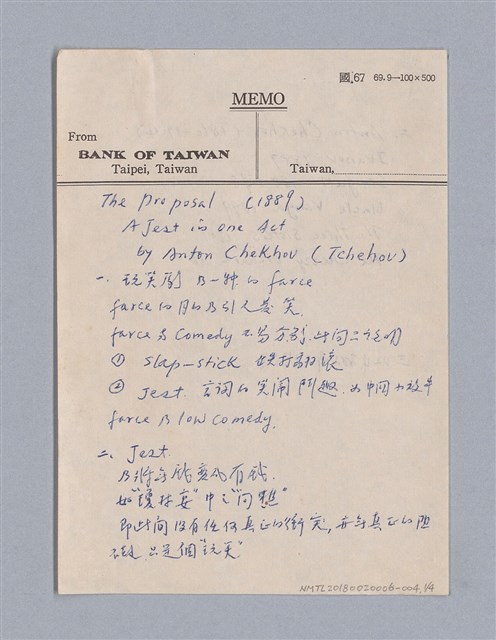 國.67 69.9—100×500
MEMO
From
BANK OF TAIWAN
Taipei, Taiwan
Taiwan,
The Proposal (1889)
A Jest in one Act
by Anton Chekhov (Tchehov)
一. 玩笑劇 乃一种的 farce
farce 的目的乃引人發笑.
farce 与 Comedy 不易分别,
① slap-stick 跌打翻滾
② Jest. 言詞的笑闹鬥趣. 如中國
farce 乃 low comedy.
二. Jest.
乃將無
如"瓊林宴"中之"问樵"
即此间沒有任何真正的衝突, 亦無真正的阻
只是個"玩笑"
NMTL20180020006-004, 1/4